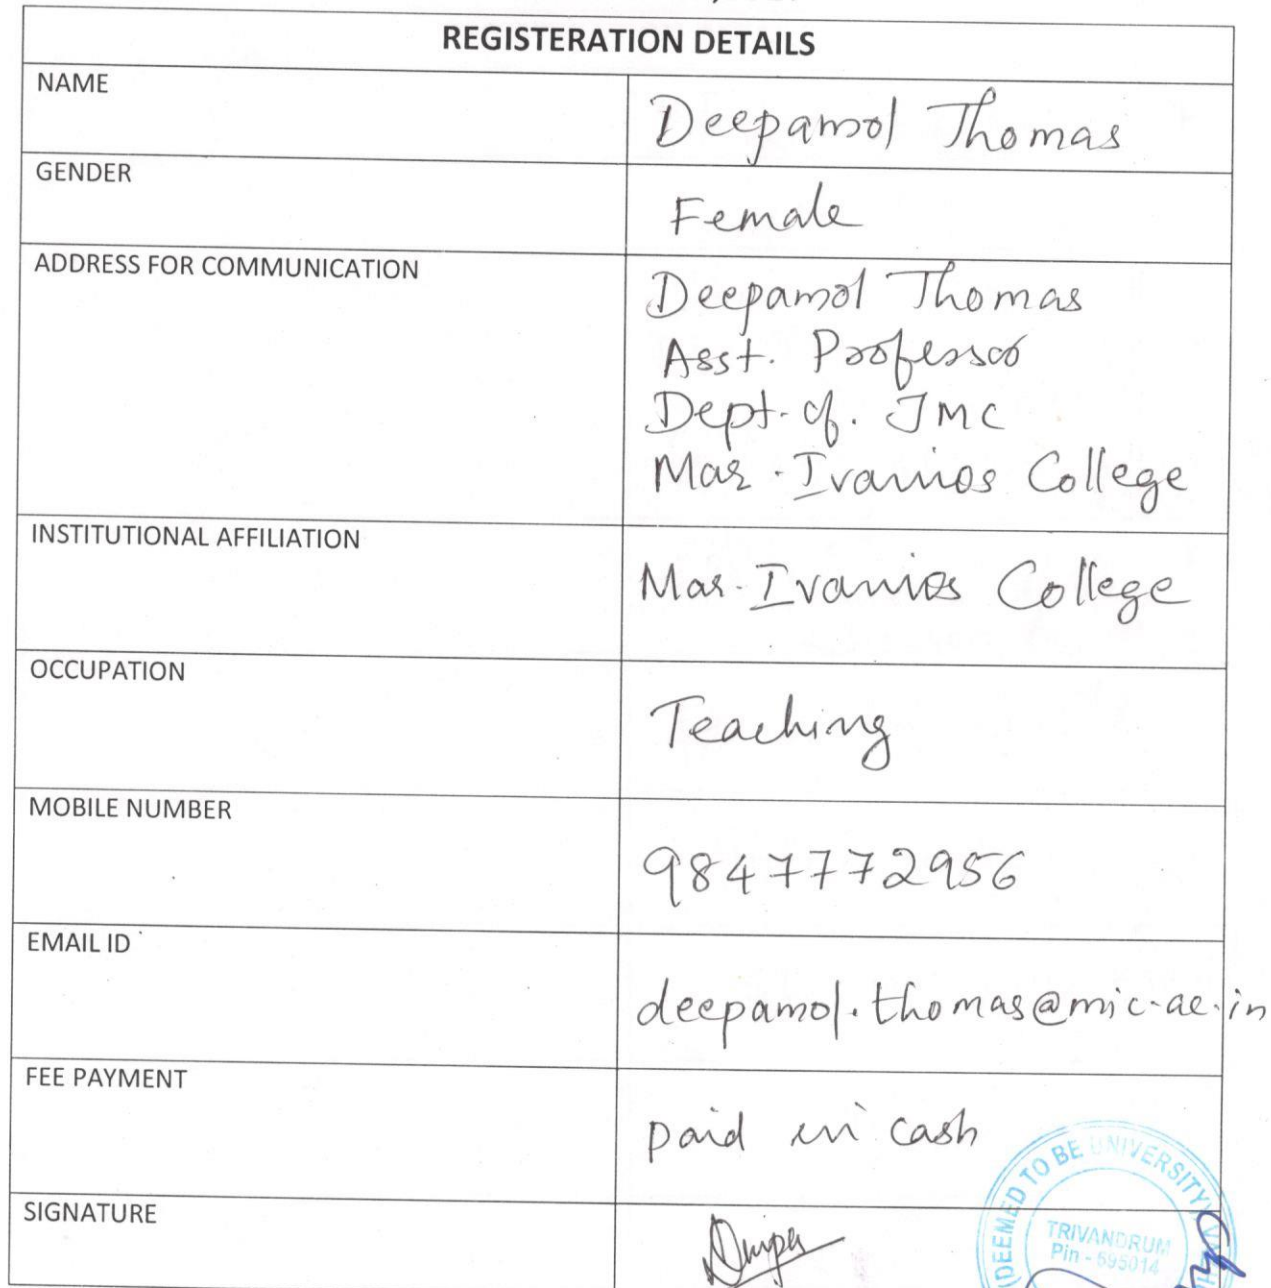 REGISTERATION DETAILS
NAME
Deepamol Thomas
GENDER
Female
ADDRESS FOR COMMUNICATION
Deepamol Thomas
Asst. Professor
Dept. of. JMC
Mar. Ivanios College
INSTITUTIONAL AFFILIATION
Mar. Ivanios College
OCCUPATION
Teaching
MOBILE NUMBER
9847772956
EMAIL ID
deepamol.thomas@mic.ac.in
FEE PAYMENT
paid in cash
SIGNATURE
(DEEMED TO BE UNIVERSITY)
TRIVANDRUM
Pin - 695014